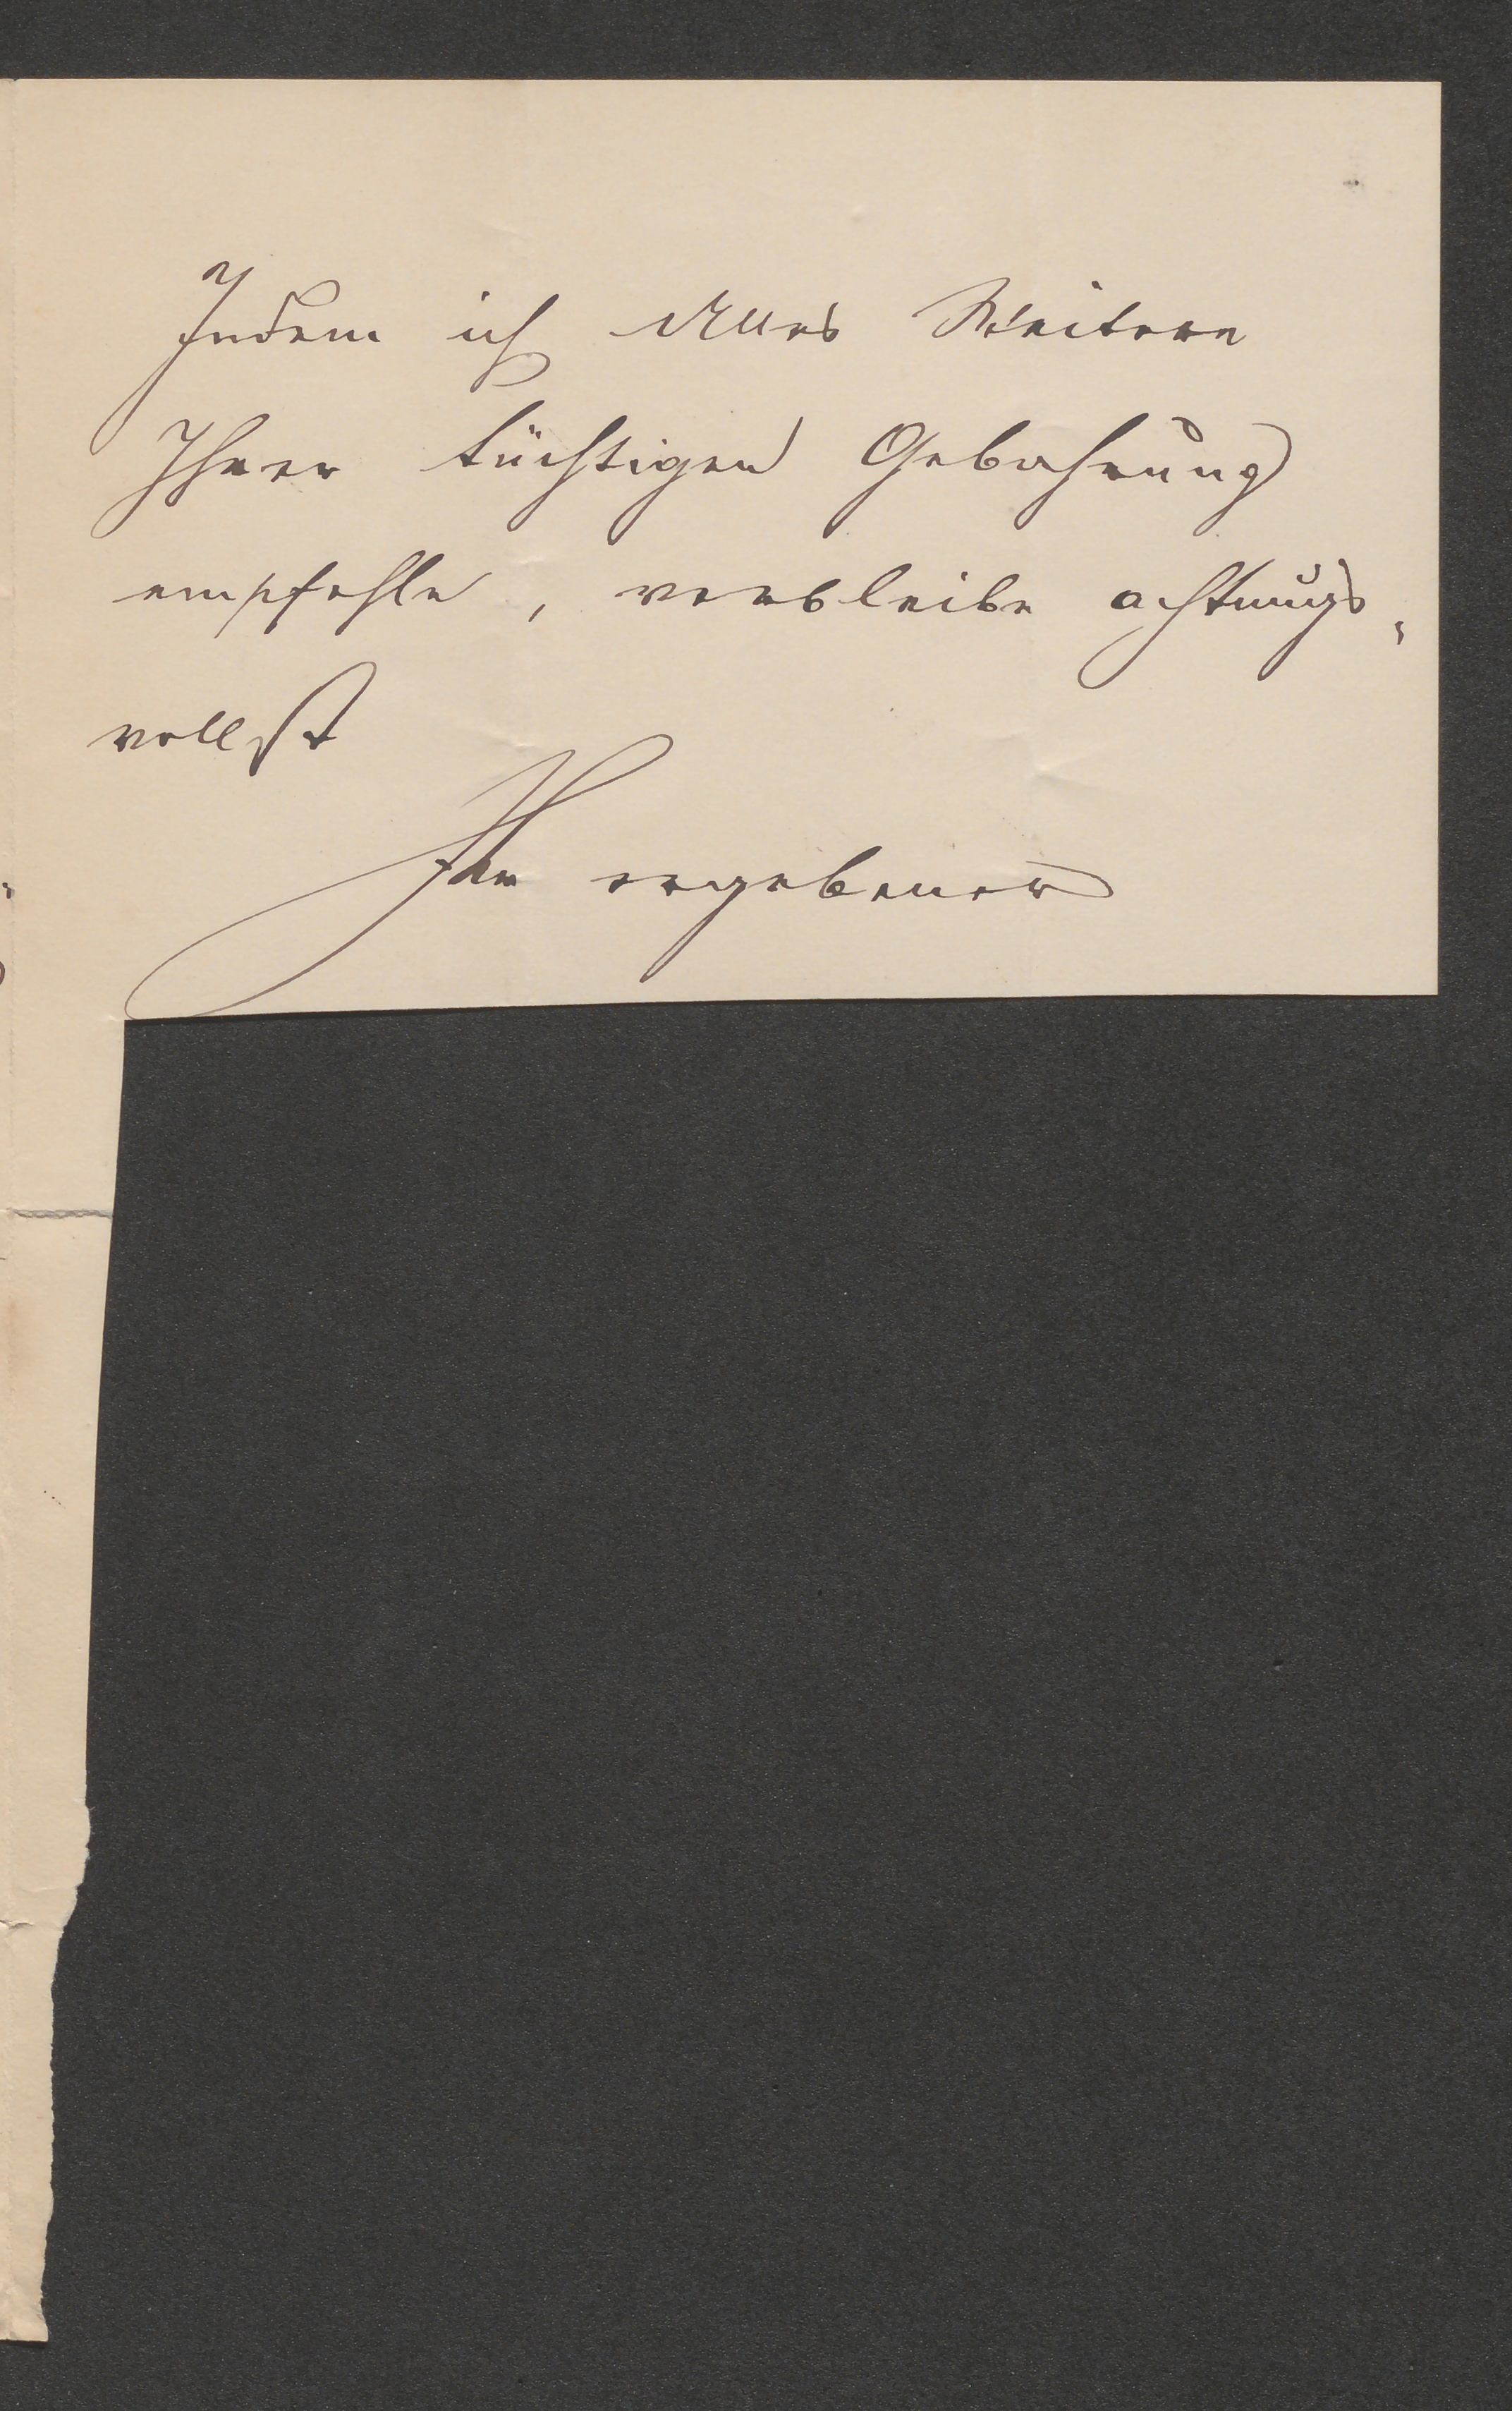 Indem ich Alles Weitere
Ihrer tüchtigen Gebahrung
empfehle, verbleibe achtungs-
vollst
Ihr ergebener